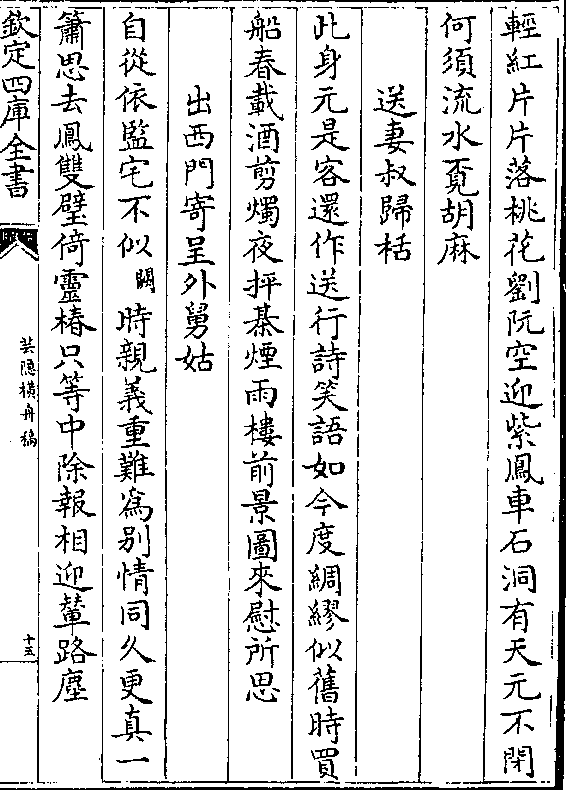 輕紅片片落桃花劉阮空迎紫鳳車石洞有天元不閉
何須流水覔胡麻
送妻叔歸栝
此身元是客還作送行詩笑語如今度綢繆似舊時買
船春載酒剪燭夜抨棊煙雨樓前景圖來慰所思
出西門寄呈外舅姑
自從依監宅不似闕時親義重難為别情同久更真一
簫思去鳳雙璧倚靈椿只等中除報相迎輦路塵
欽定四庫全書
芸隱橫舟稿
十五